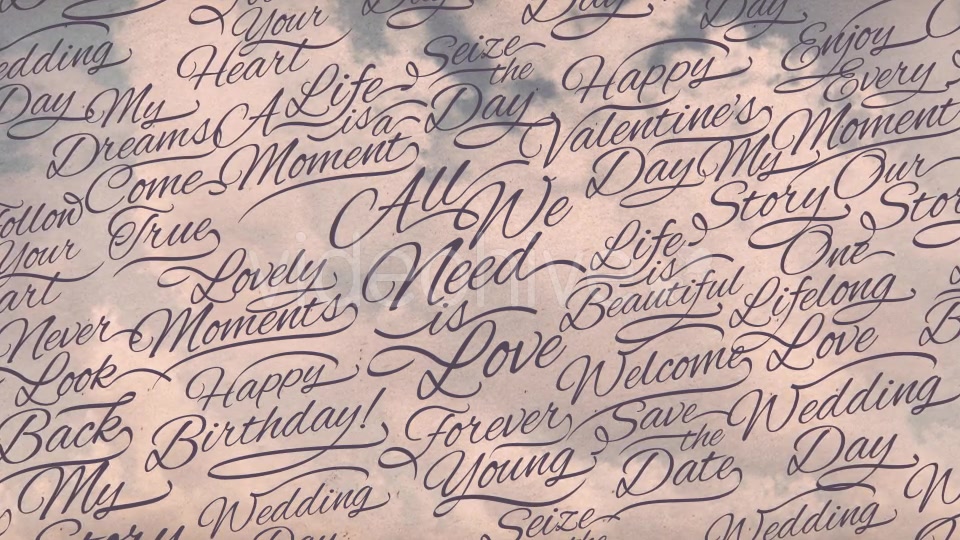 Your
Heart
Wedding
Day
Seize
the
Day
Day
Day
Happy
Valentine's
Day
Enjoy
Every
Moment
My
Dreams
Come
True
A Life
is a
Moment
Follow
Your
Heart
All We
Need
is
Love
My
Story
Our
Story
Lovely
Moments
Life
is
Beautiful
One
Lifelong
Love
Never
Look
Back
Happy
Birthday!
Forever
Young
Welcome
Save
the
Date
Wedding
Day
My
Story
Wedding
Day
Seize
the
Wedding
videohive